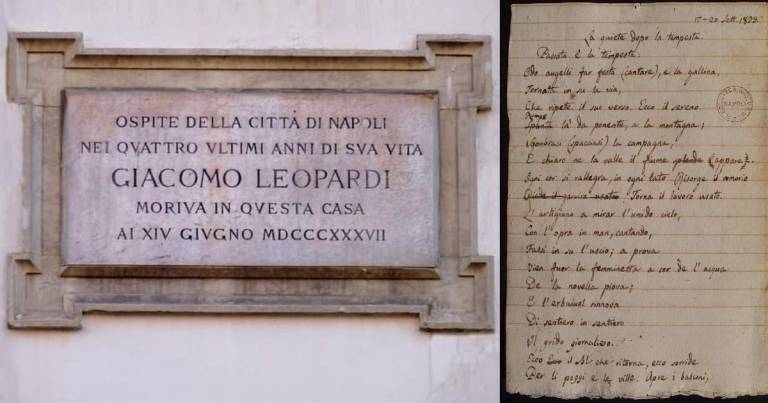 OSPITE DELLA CITTÀ DI NAPOLI
NEI QVATTRO VLTIMI ANNI DI SVA VITA
GIACOMO LEOPARDI
MORIVA IN QVESTA CASA
AI XIV GIVGNO MDCCCXXXVII
17-20 Sett. 1829.
La quiete dopo la tempesta.
Passata è la tempesta:
Odo augelli far festa (cantare), e la gallina,
Tornata in su la via,
Che ripete il suo verso. Ecco il sereno
Rompe
Spunta là da ponente, a la montagna;
Sgombrasi (spacciasi) la campagna,
E chiaro ne la valle il fiume splende (appare).
Ogni cor si rallegra, in ogni lato (Risorge il romorio
Torna il lavoro usato.
L'artigiano a mirar l'umido cielo,
Con l'opra in man, cantando,
Fassi in su l'uscio; a prova
Vien fuor la femminetta a cor de l'acqua
De la novella piova;
E l'erbaiuol rinnova
Di sentiero in sentiero
Il grido giornaliero.
Ecco il Sol che ritorna, ecco sorride
Per li poggi e le ville. Apre i balconi,
NAPOLI